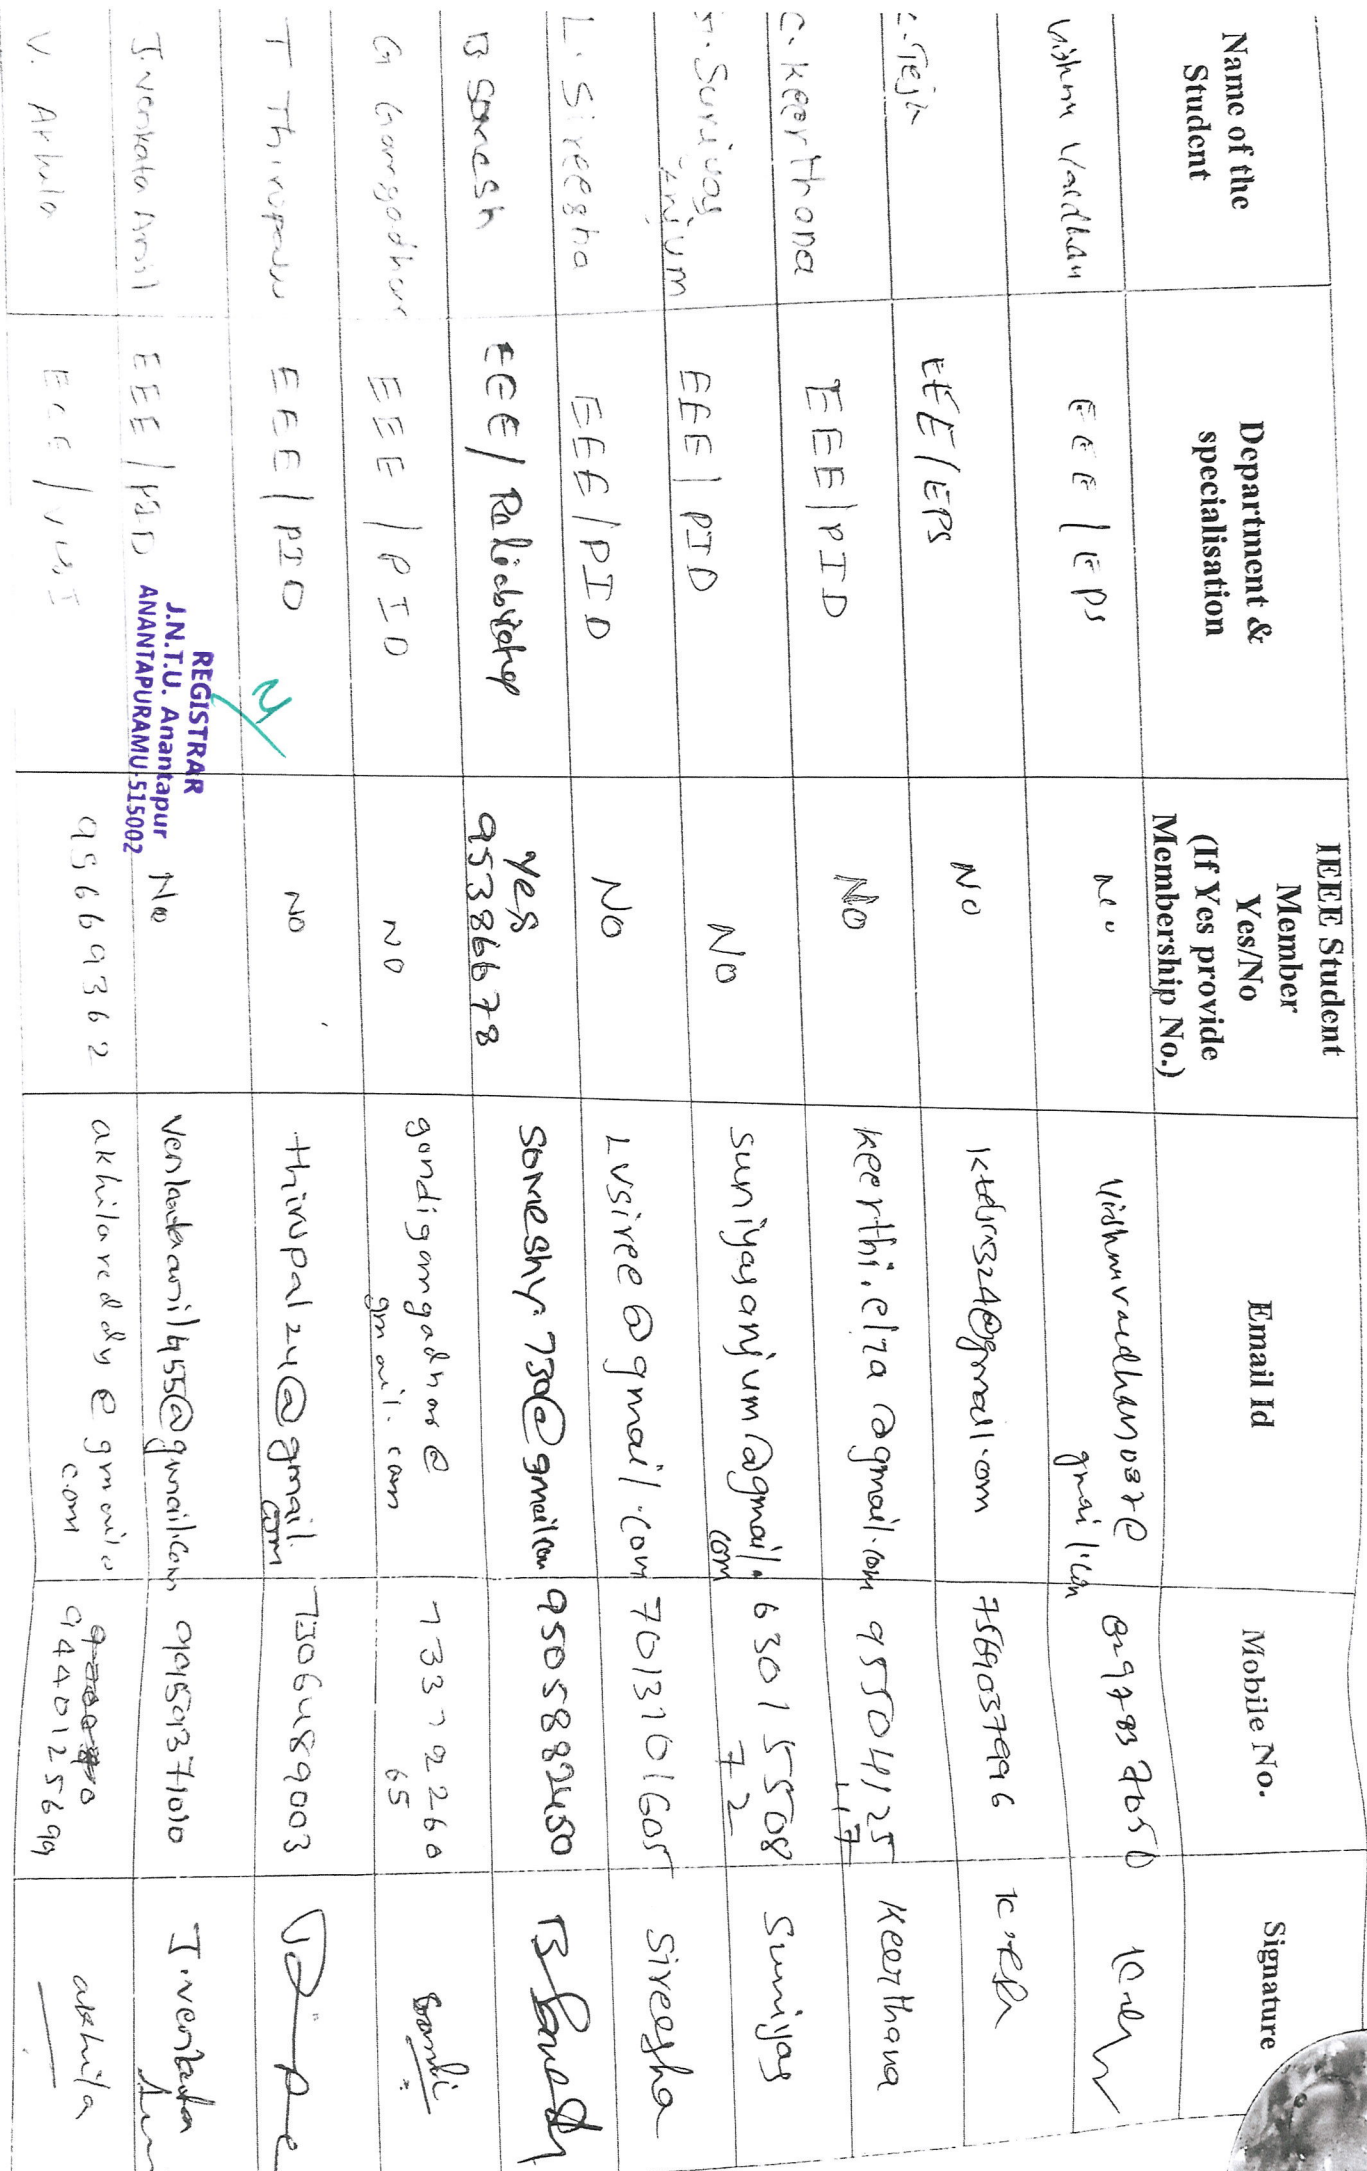 Name of the
Student
Department &
specialisation
IEEE Student
Member
Yes/No
(If Yes provide
Membership No.)
Email Id
Mobile No.
Signature
Vishnu Vardhan
EEE / EPS
No
gmail.com
Teja
EEE/EPS
NO
@gmail.com
7569037996
C. Keerthana
EEE/PID
No
keerthi.e17a@gmail.com
955041125
17
Keerthana
Suniyas
Anjum
EEE/PID
No
suniyasanjum@gmail.
com
630155508
72
Suniyas
L. Sireesha
EEE/PID
No
Lvsiree@gmail.com
7013101605
Sireesha
B Somesh
EEE/
Yes
95386678
Someshy.730@gmail.com
9505882450
G Gangadhar
EEE / PID
NO
gandigamgadhar@
gmail.com
73372260
65
T Thirupalu
EEE/PID
NO
thirupal24@gmail.
com
J. Venkata Anil
EEE /
No
99159371010
J. Venkata
V. Akhila
ECE /
95669362
akhilareddy@gmail.
com
9440125699
akhila
REGISTRAR
J.N.T.U. Anantapur
ANANTAPURAMU-515002